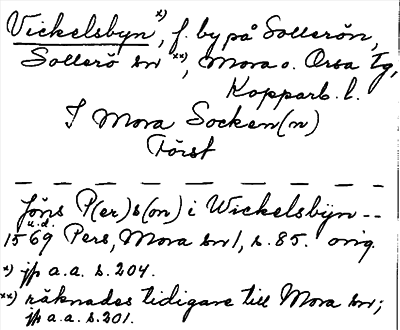 Vickelsbyn x), f. by på Sollerön,
Sollerö sn xx), Mora o. Orsa tg,
Kopparb. l.
I Mora Socken(n)
Först
Jöns P(er)s(on) i Wickelsbÿn --
u.d.
1569 Pers, Mora sn 1, s. 85. orig.
x) jfr a.a. s. 204.
xx) räknades tidigare till Mora sn;
jfr a.a. s. 201.